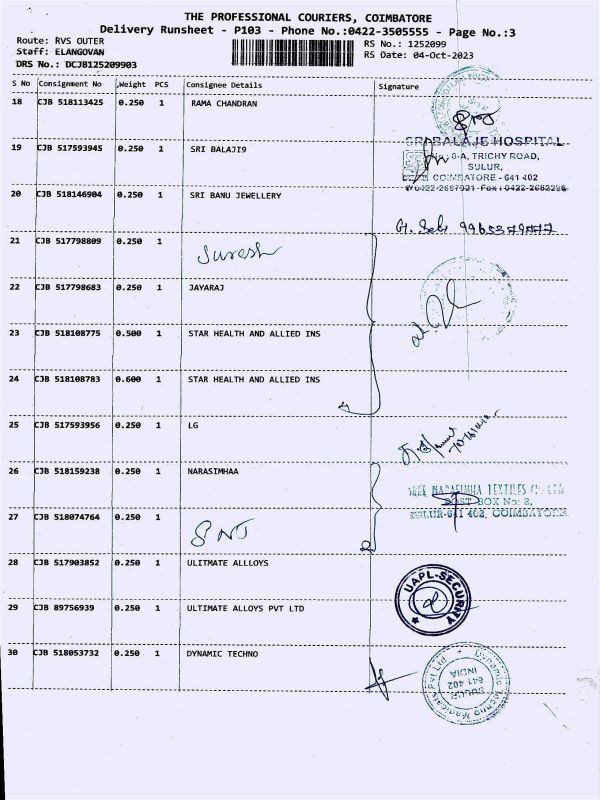 THE PROFESSIONAL COURIERS, COIMBATORE
Delivery Runsheet - P103 - Phone No.:0422-3505555 - Page No.:3
Route: RVS OUTER
Staff: ELANGOVAN
DRS No.: DCJB125209903
RS No.: 1252099
RS Date: 04-Oct-2023
S No Consignment No Weight PCS Consignee Details Signature
18 CJB 518113425 0.250 1 RAMA CHANDRAN
19 CJB 517593945 0.250 1 SRI BALAJI9
HOSPITAL
6-A, TRICHY ROAD,
SULUR,
COIMBATORE - 641 402
20 CJB 518146904 0.250 1 SRI BANU JEWELLERY
21 CJB 517798809 0.250 1 Suresh
22 CJB 517798683 0.250 1 JAYARAJ
23 CJB 518108775 0.500 1 STAR HEALTH AND ALLIED INS
24 CJB 518108783 0.600 1 STAR HEALTH AND ALLIED INS
25 CJB 517593956 0.250 1 LG
26 CJB 518159238 0.250 1 NARASIMHAA
NARASIMHA TEXTILES
POST BOX No: 2,
SULUR-641 402, COIMBATORE
27 CJB 518074764 0.250 1 SNJ
28 CJB 517903852 0.250 1 ULITMATE ALLLOYS
UAPL-SECURITY
29 CJB 89756939 0.250 1 ULTIMATE ALLOYS PVT LTD
30 CJB 518053732 0.250 1 DYNAMIC TECHNO
Dynamic Techno Medicals Pvt Ltd
SULUR
641 402
INDIA